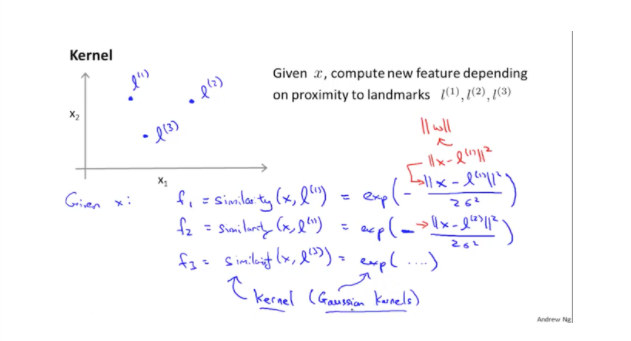 Kernel
Given x, compute new feature depending
on proximity to landmarks l⁽¹⁾, l⁽²⁾, l⁽³⁾
l⁽¹⁾
l⁽²⁾
x₂
l⁽³⁾
x₁
||w||
||x - l⁽¹⁾||²
Given x: f₁ = similarity (x, l⁽¹⁾) = exp(- ||x - l⁽¹⁾||² / 2σ²)
f₂ = similarity (x, l⁽¹⁾) = exp(- ||x - l⁽²⁾||² / 2σ²)
f₃ = similarity (x, l⁽³⁾) = exp( ....)
kernel (Gaussian kernels)
Andrew Ng